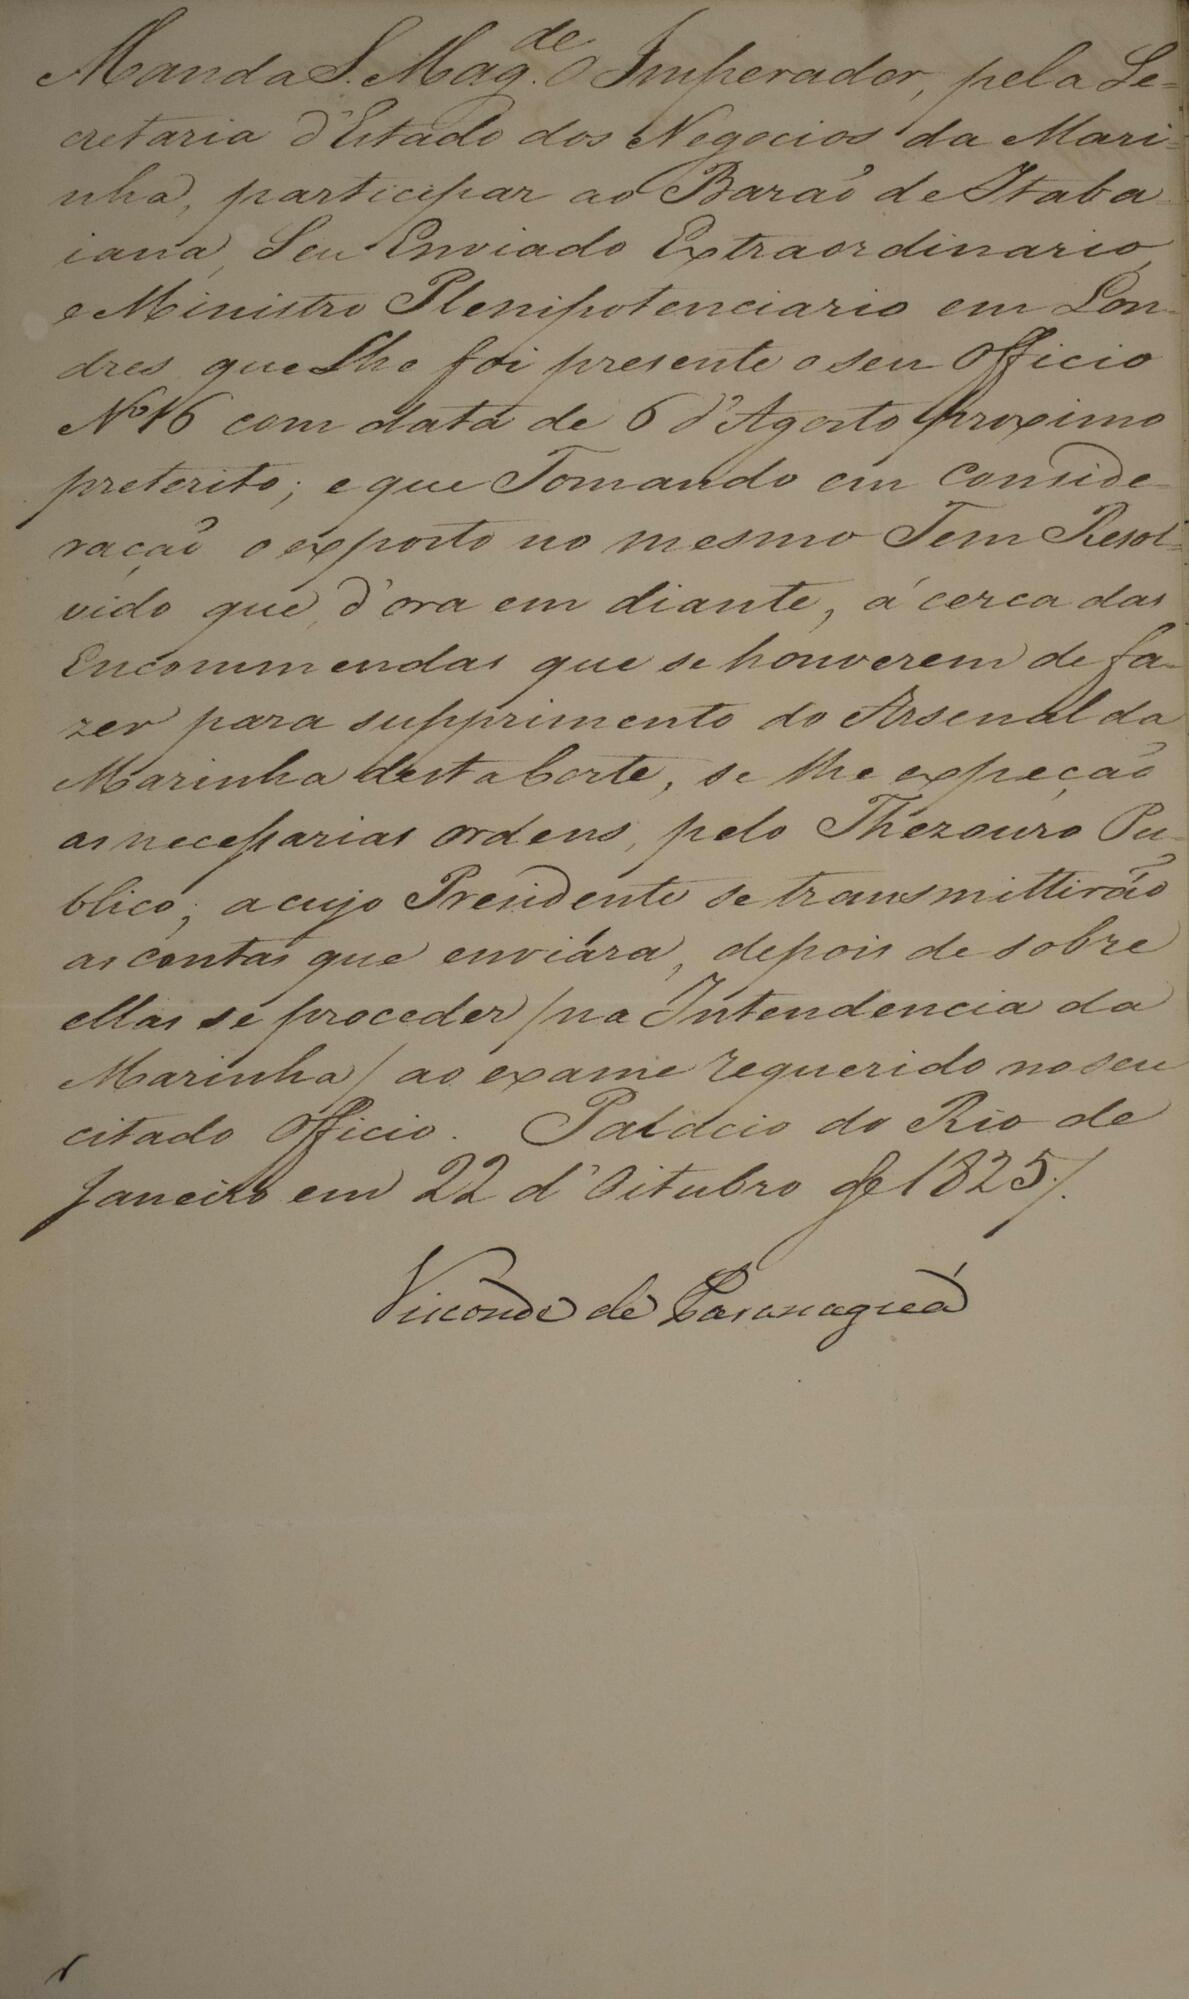 Manda S. Mag.de O Imperador, pela Se-
cretaria d'Estado dos Negocios da Mari-
nha, participar ao Barão de Itaba-
iana, Seu Enviado Extraordinario,
e Ministro Plenipotenciario em Lon-
dres, que Lhe foi presente o seu Officio
Nº 16 com data de 6 d'Agosto proximo
preterito; e que Tomando em conside-
ração o exposto no mesmo Tem Resol-
vido que, d'ora em diante, á cerca das
Encommendas que se houverem de fa-
zer para supprimento do Arsenal da
Marinha desta Corte, se lhe expeção
as necessarias ordens, pelo Thezouro Pu-
blico; a cujo Presidente se transmittirão
as contas que enviára, depois de sobre
ellas se proceder /na Intendencia da
Marinha/ ao exame requerido no seu
citado Officio. Palacio do Rio de
Janeiro em 22 d'Oitubro de 1825/.
Visconde de Paranaguá